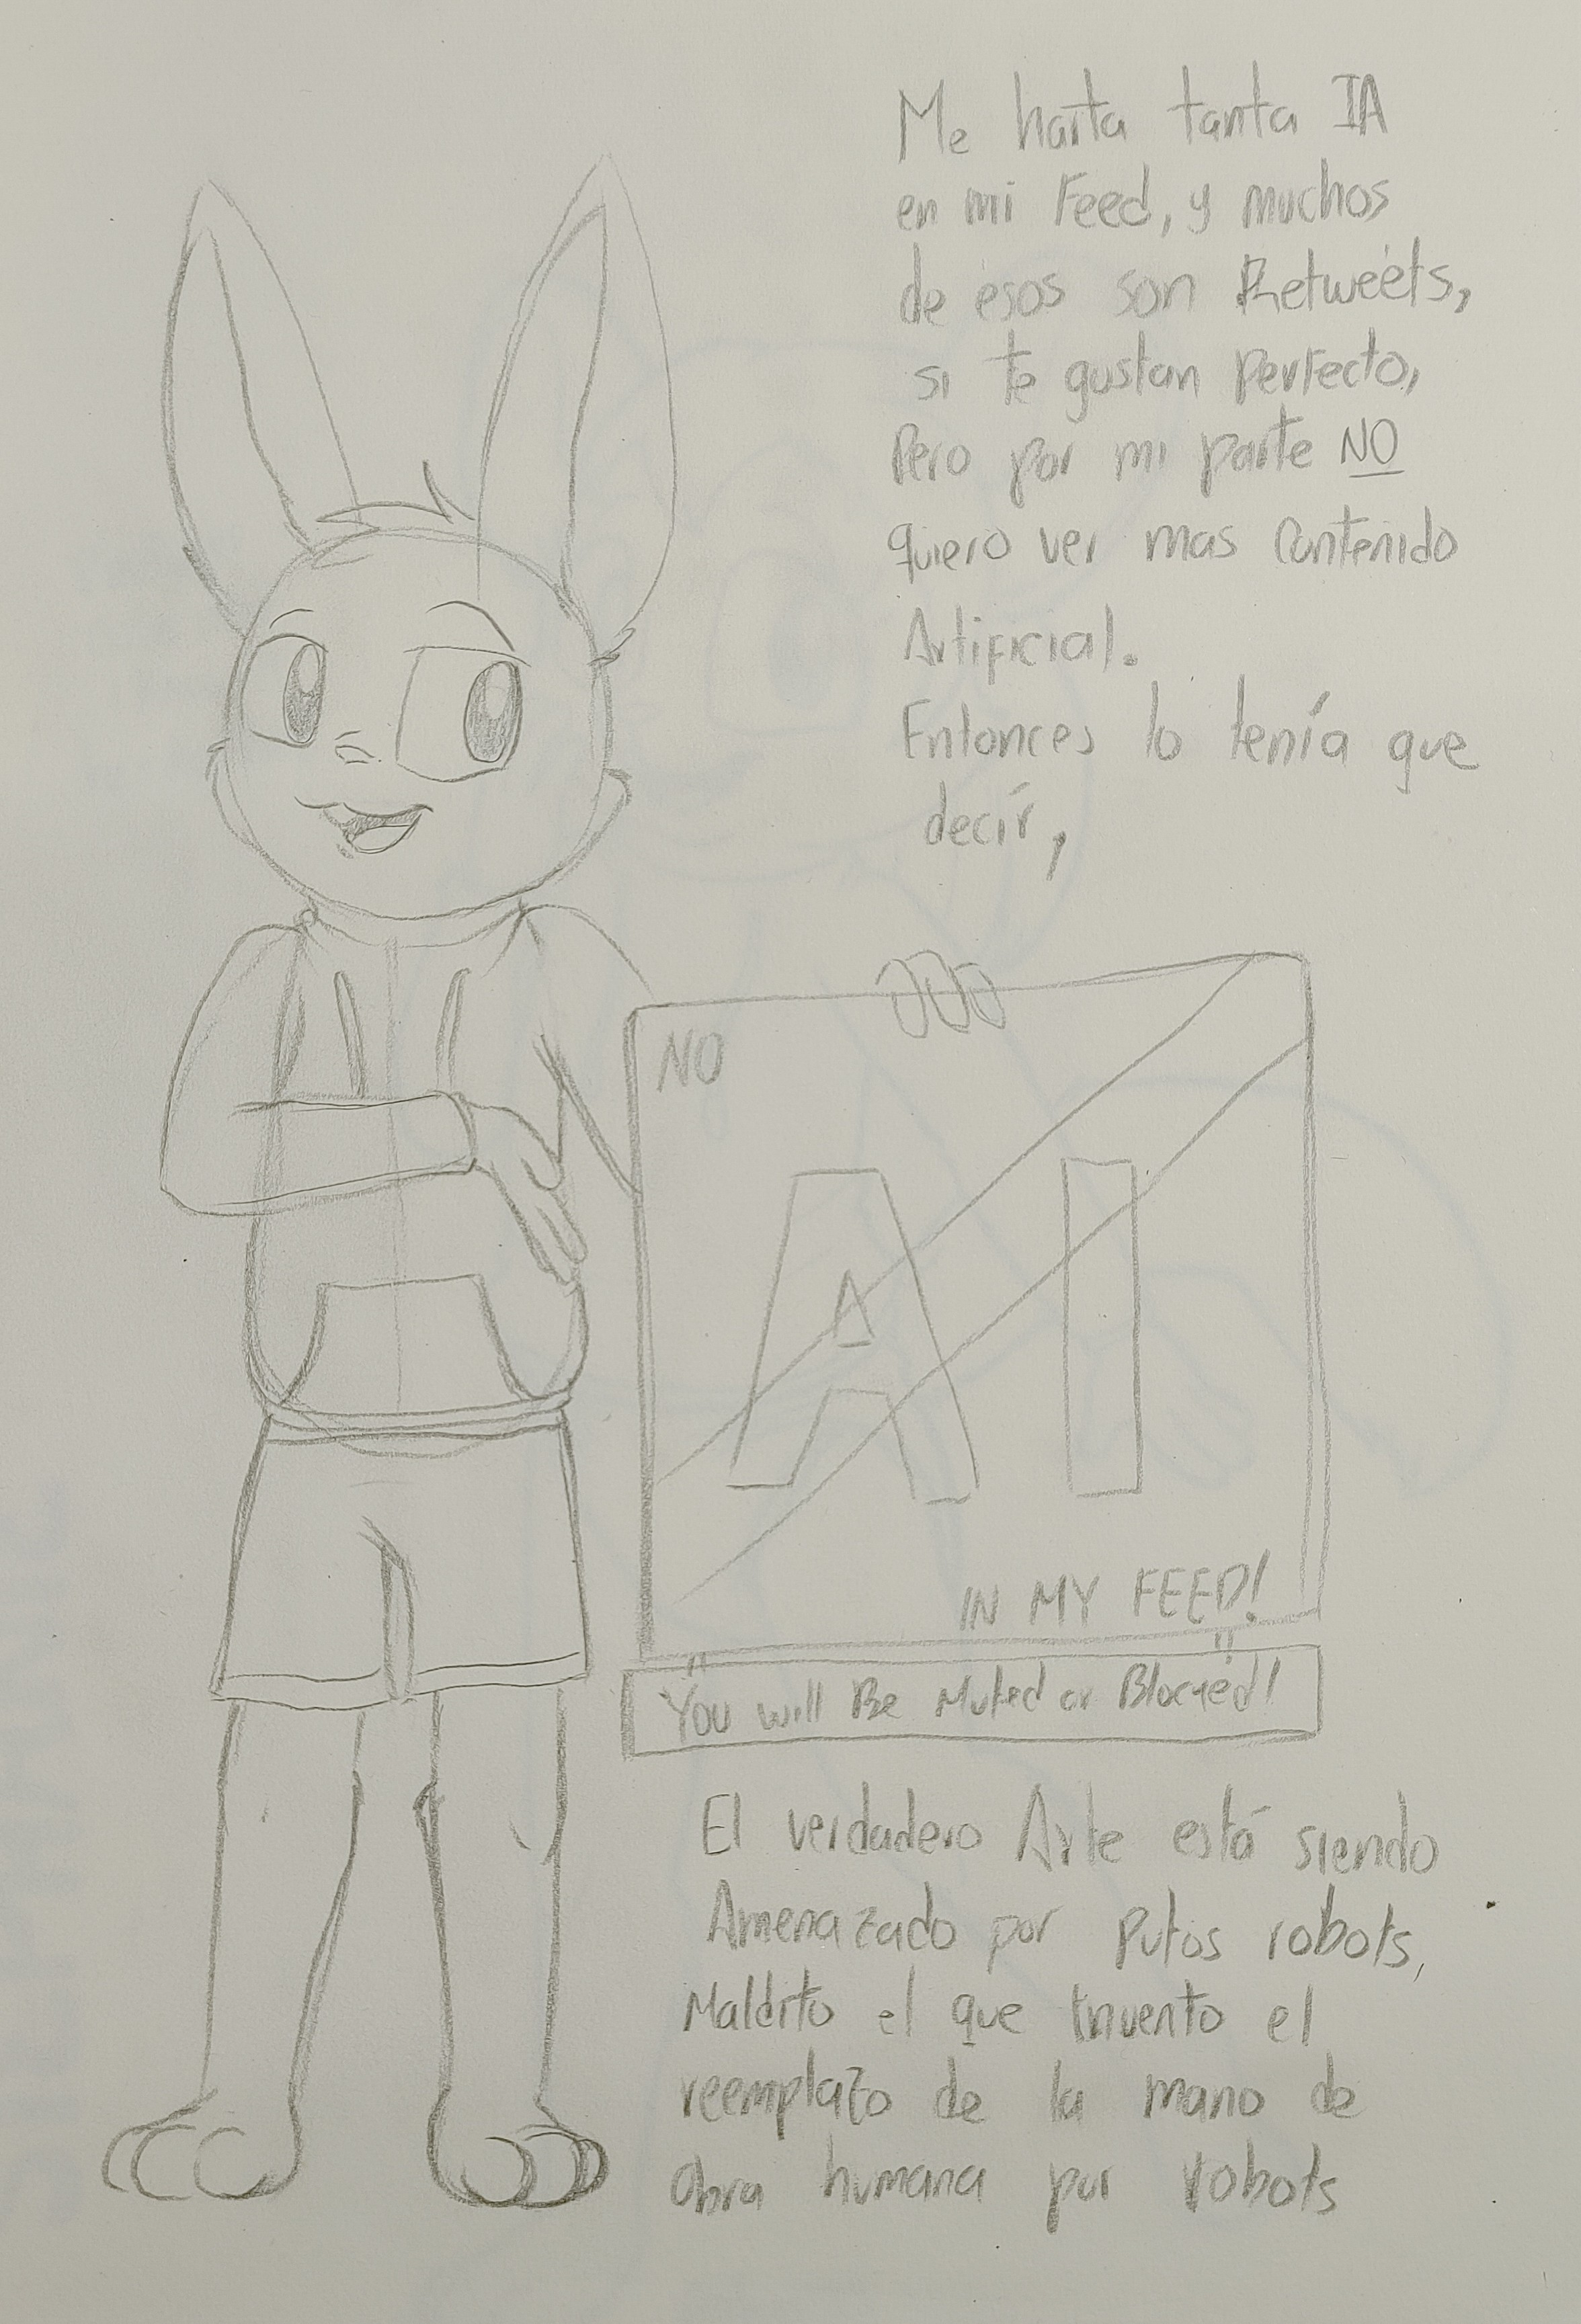 Me harta tanta IA
en mi Feed, y muchos
de esos son Retweets,
si te gustan perfecto,
Pero por mi parte NO
quiero ver mas Contenido
Artificial.
Entonces lo tenía que
decír,
NO
AI
IN MY FEED!
You will Be Muted or Blocked!
El verdadero Arte está siendo
Amenazado por Putos robots,
Maldito el que invento el
reemplazo de la mano de
obra humana por robots